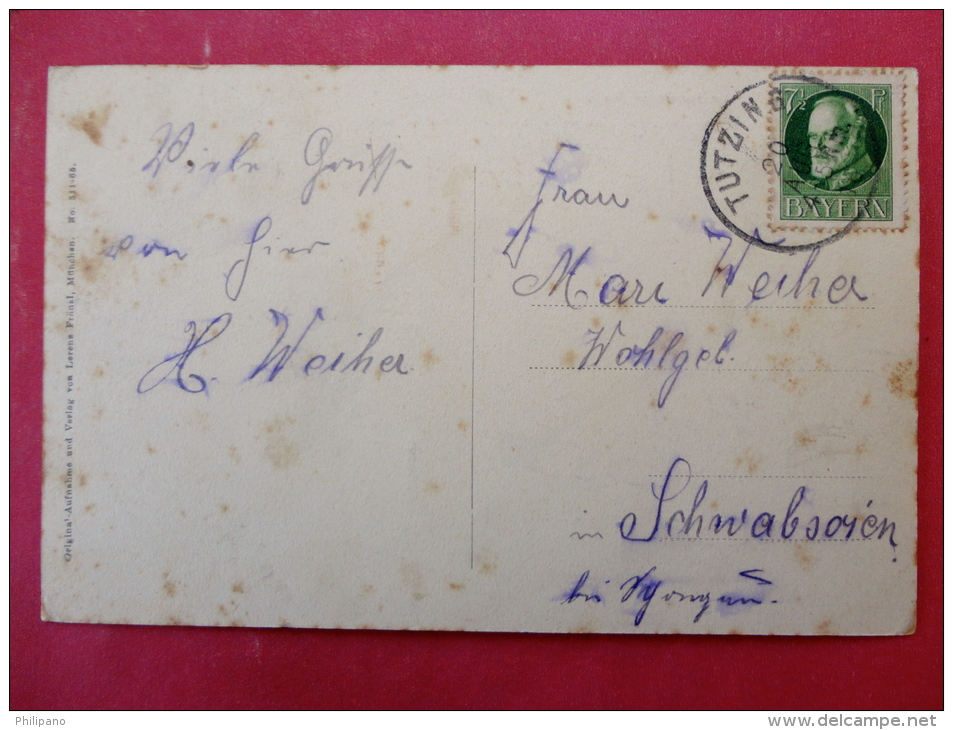 Viele Grüsse
von hier
H. Weiher
Original-Aufnahme und Verlag von Lorenz Fränzl, München. No. 511-65.
7½ Pf
BAYERN
TUTZING
20
Frau
Mari Weiher
Wohlgeb.
in Schwabsoien
bei Schongau.
Philipano
www.delcampe.net